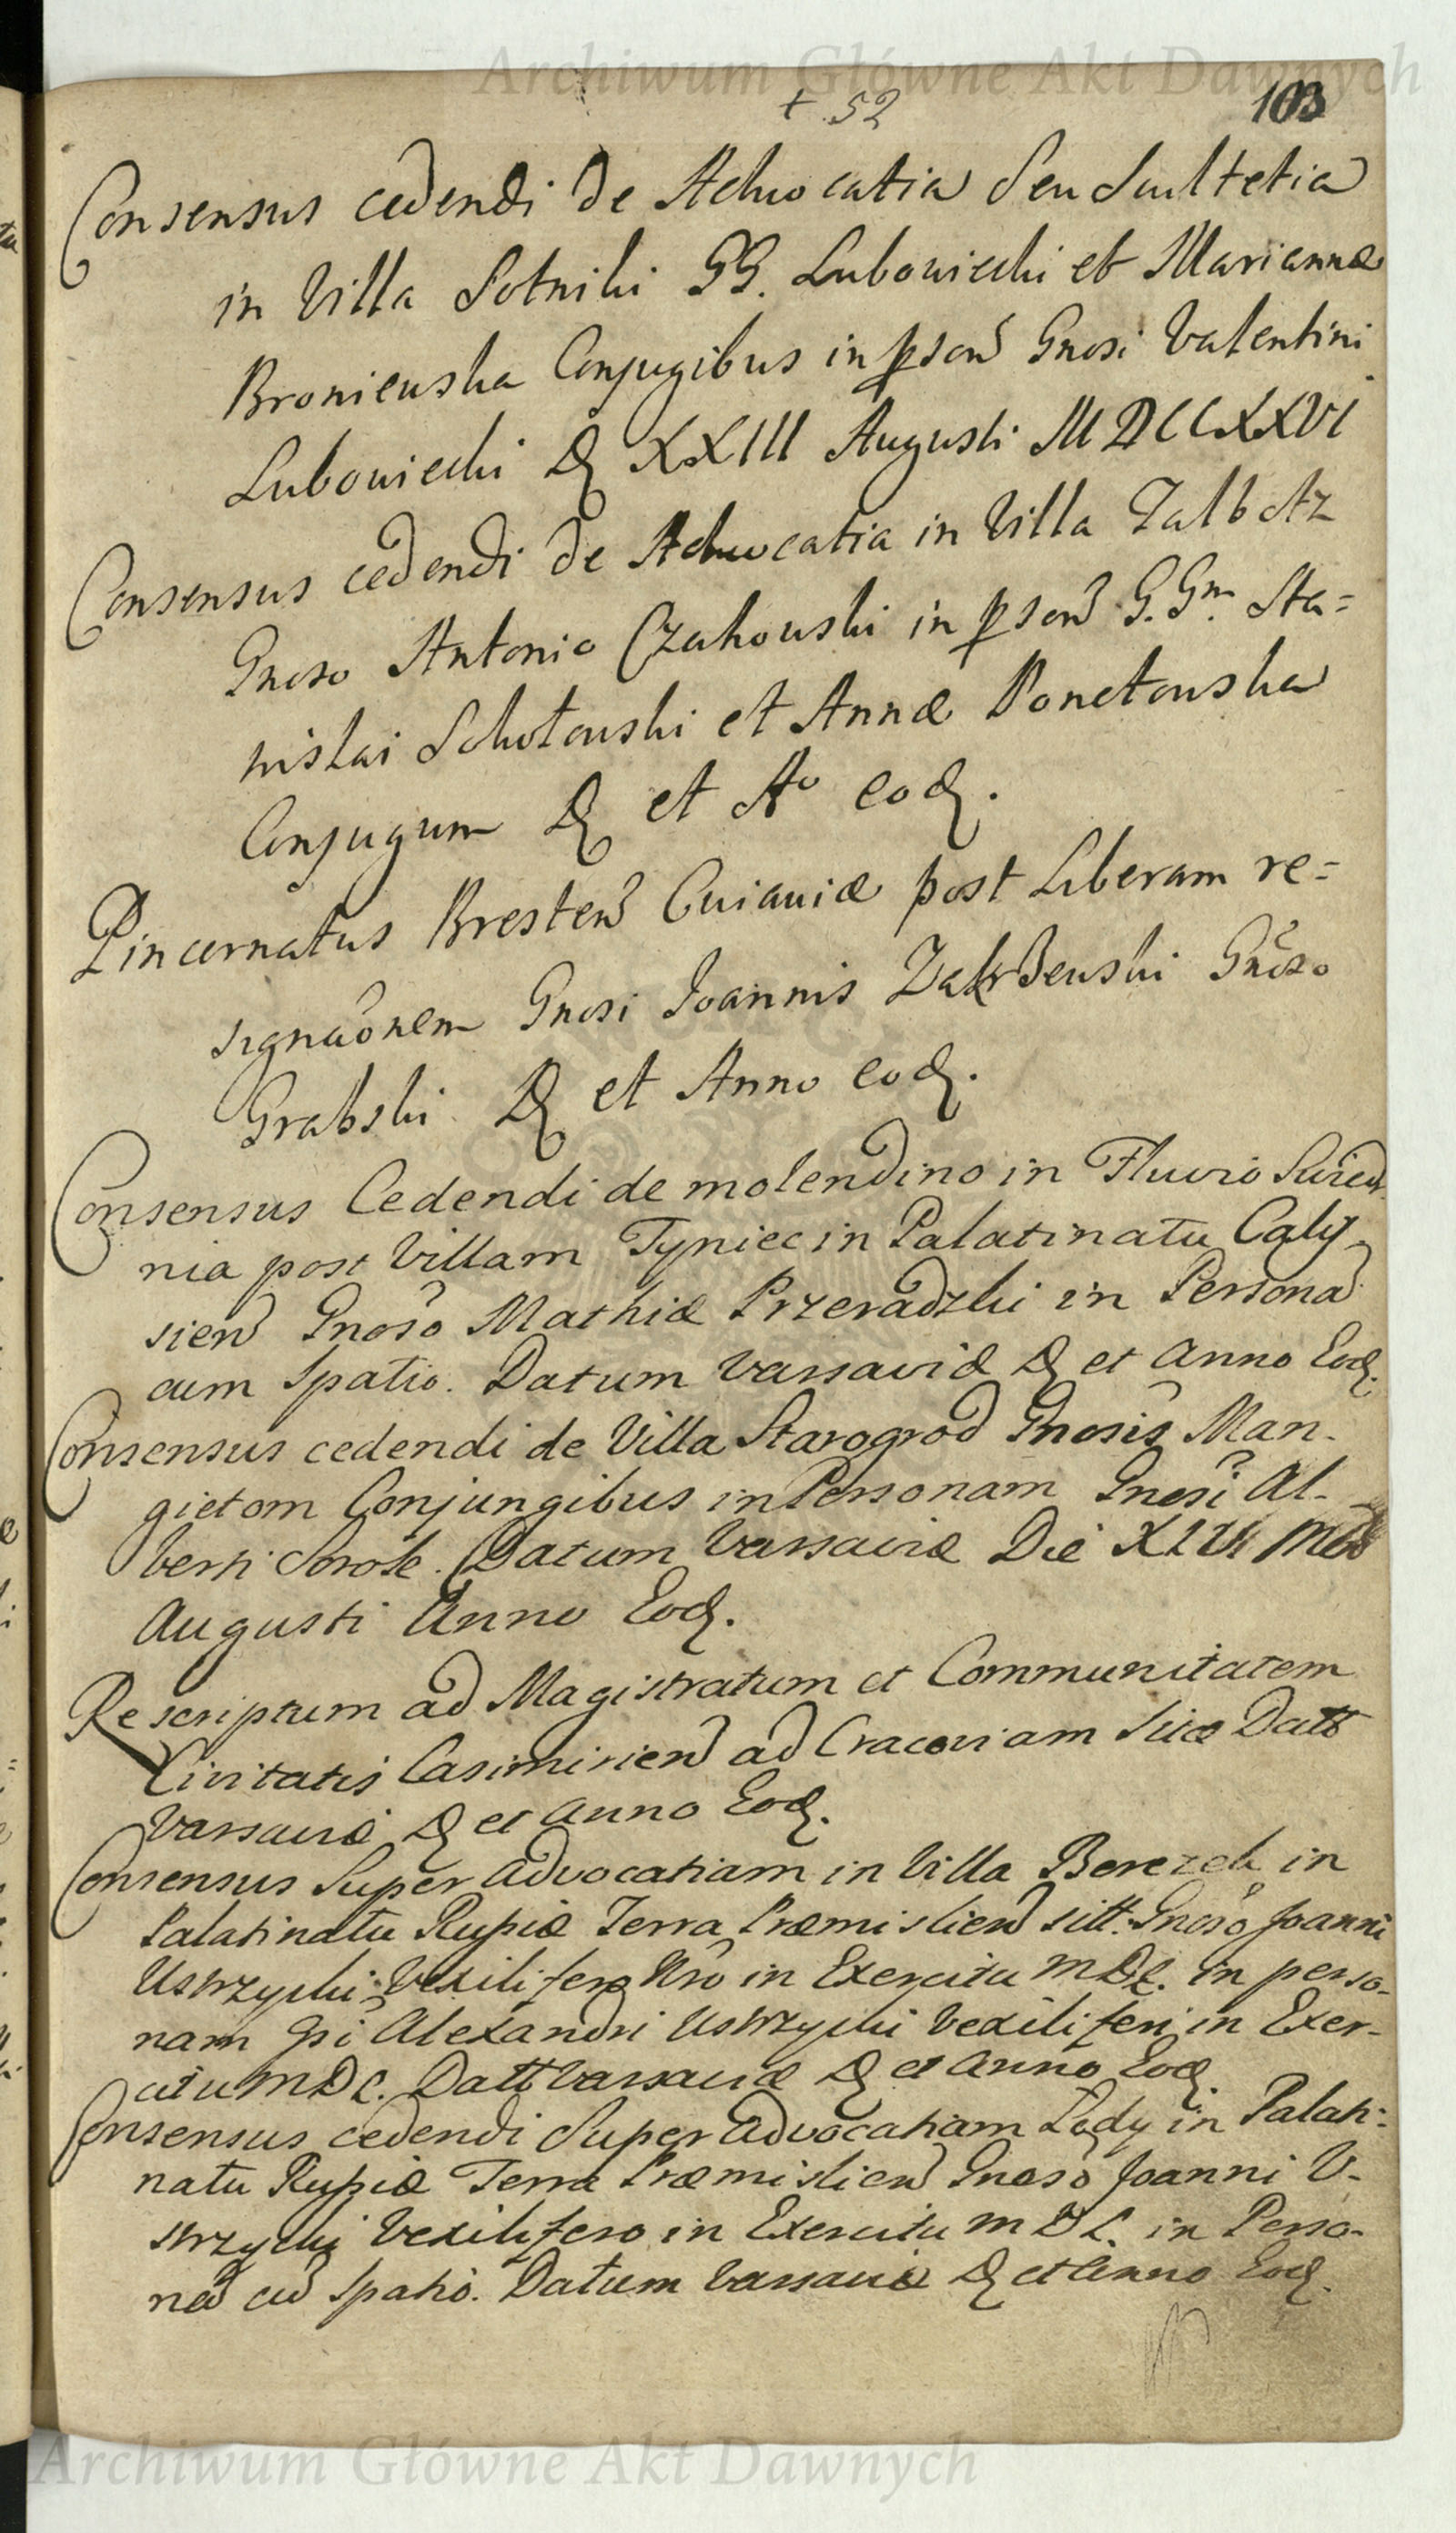 Archiwum Główne Akt Dawnych
+ 52
103
Consensus cedendi de Advocatia Seu Scultetia
in Villa Sotniki GG. Lubowiecki et Mariannæ
Broniewska Conjugibus in pson Gnosi Valentini
Lubowiecki D XXIII Augusti MDCCXXVI
Consensus cedendi de Advocatia in Villa
Gnoso Antonio Czakowski in pson G. Gm Sta=
nislai Sokołowski et Annæ Ponetowska
Conjugum D et Ao eod.
Pincernatus Bresten Cuiaviæ post Liberam re=
signaonem Gnosi Joannis Zakrzewski Gnoso
Grabski D et Anno eod.
Consensus Cedendi de molendino in Fluvio Swied
nia post Villam Tyniec in Palatinatu Caly-
sien Gnoso Mathiæ Przeradzki in Persona
cum Spatio. Datum Varsaviæ D et Anno Eod.
Consensus cedendi de Villa Starogrod Gnosis Man-
gietom Conjungibus in Personam Gnosi Al-
berti . Datum Varsaviæ Die
Augusti Anno Eod.
Rescriptum ad Magistratum et Communitatem
Civitatis Casimirien ad Cracoviam Sitæ Datt
Varsaviæ D et Anno Eod.
Consensus Super Advocatiam in Villa Berezek in
Palatinatu Rusiæ Terra Præmislien sitt. Gnoso Joanni
Ustrzycki Vexilifero Nro in Exercitu MDL. in perso-
nam Gsi Alexandri Ustrzycki Vexiliferi in Exer-
citu MDL. Datt Varsaviæ D et Anno Eod
Consensus cedendi Super Advocatiam in Palati-
natu Rusiæ Terra Præmislien Gnoso Joanni U-
strzycki Vexilifero in Exercitu MDL. in Perso-
na cu Spatio. Datum Varsaviæ D et Anno Eod.
Archiwum Główne Akt Dawnych